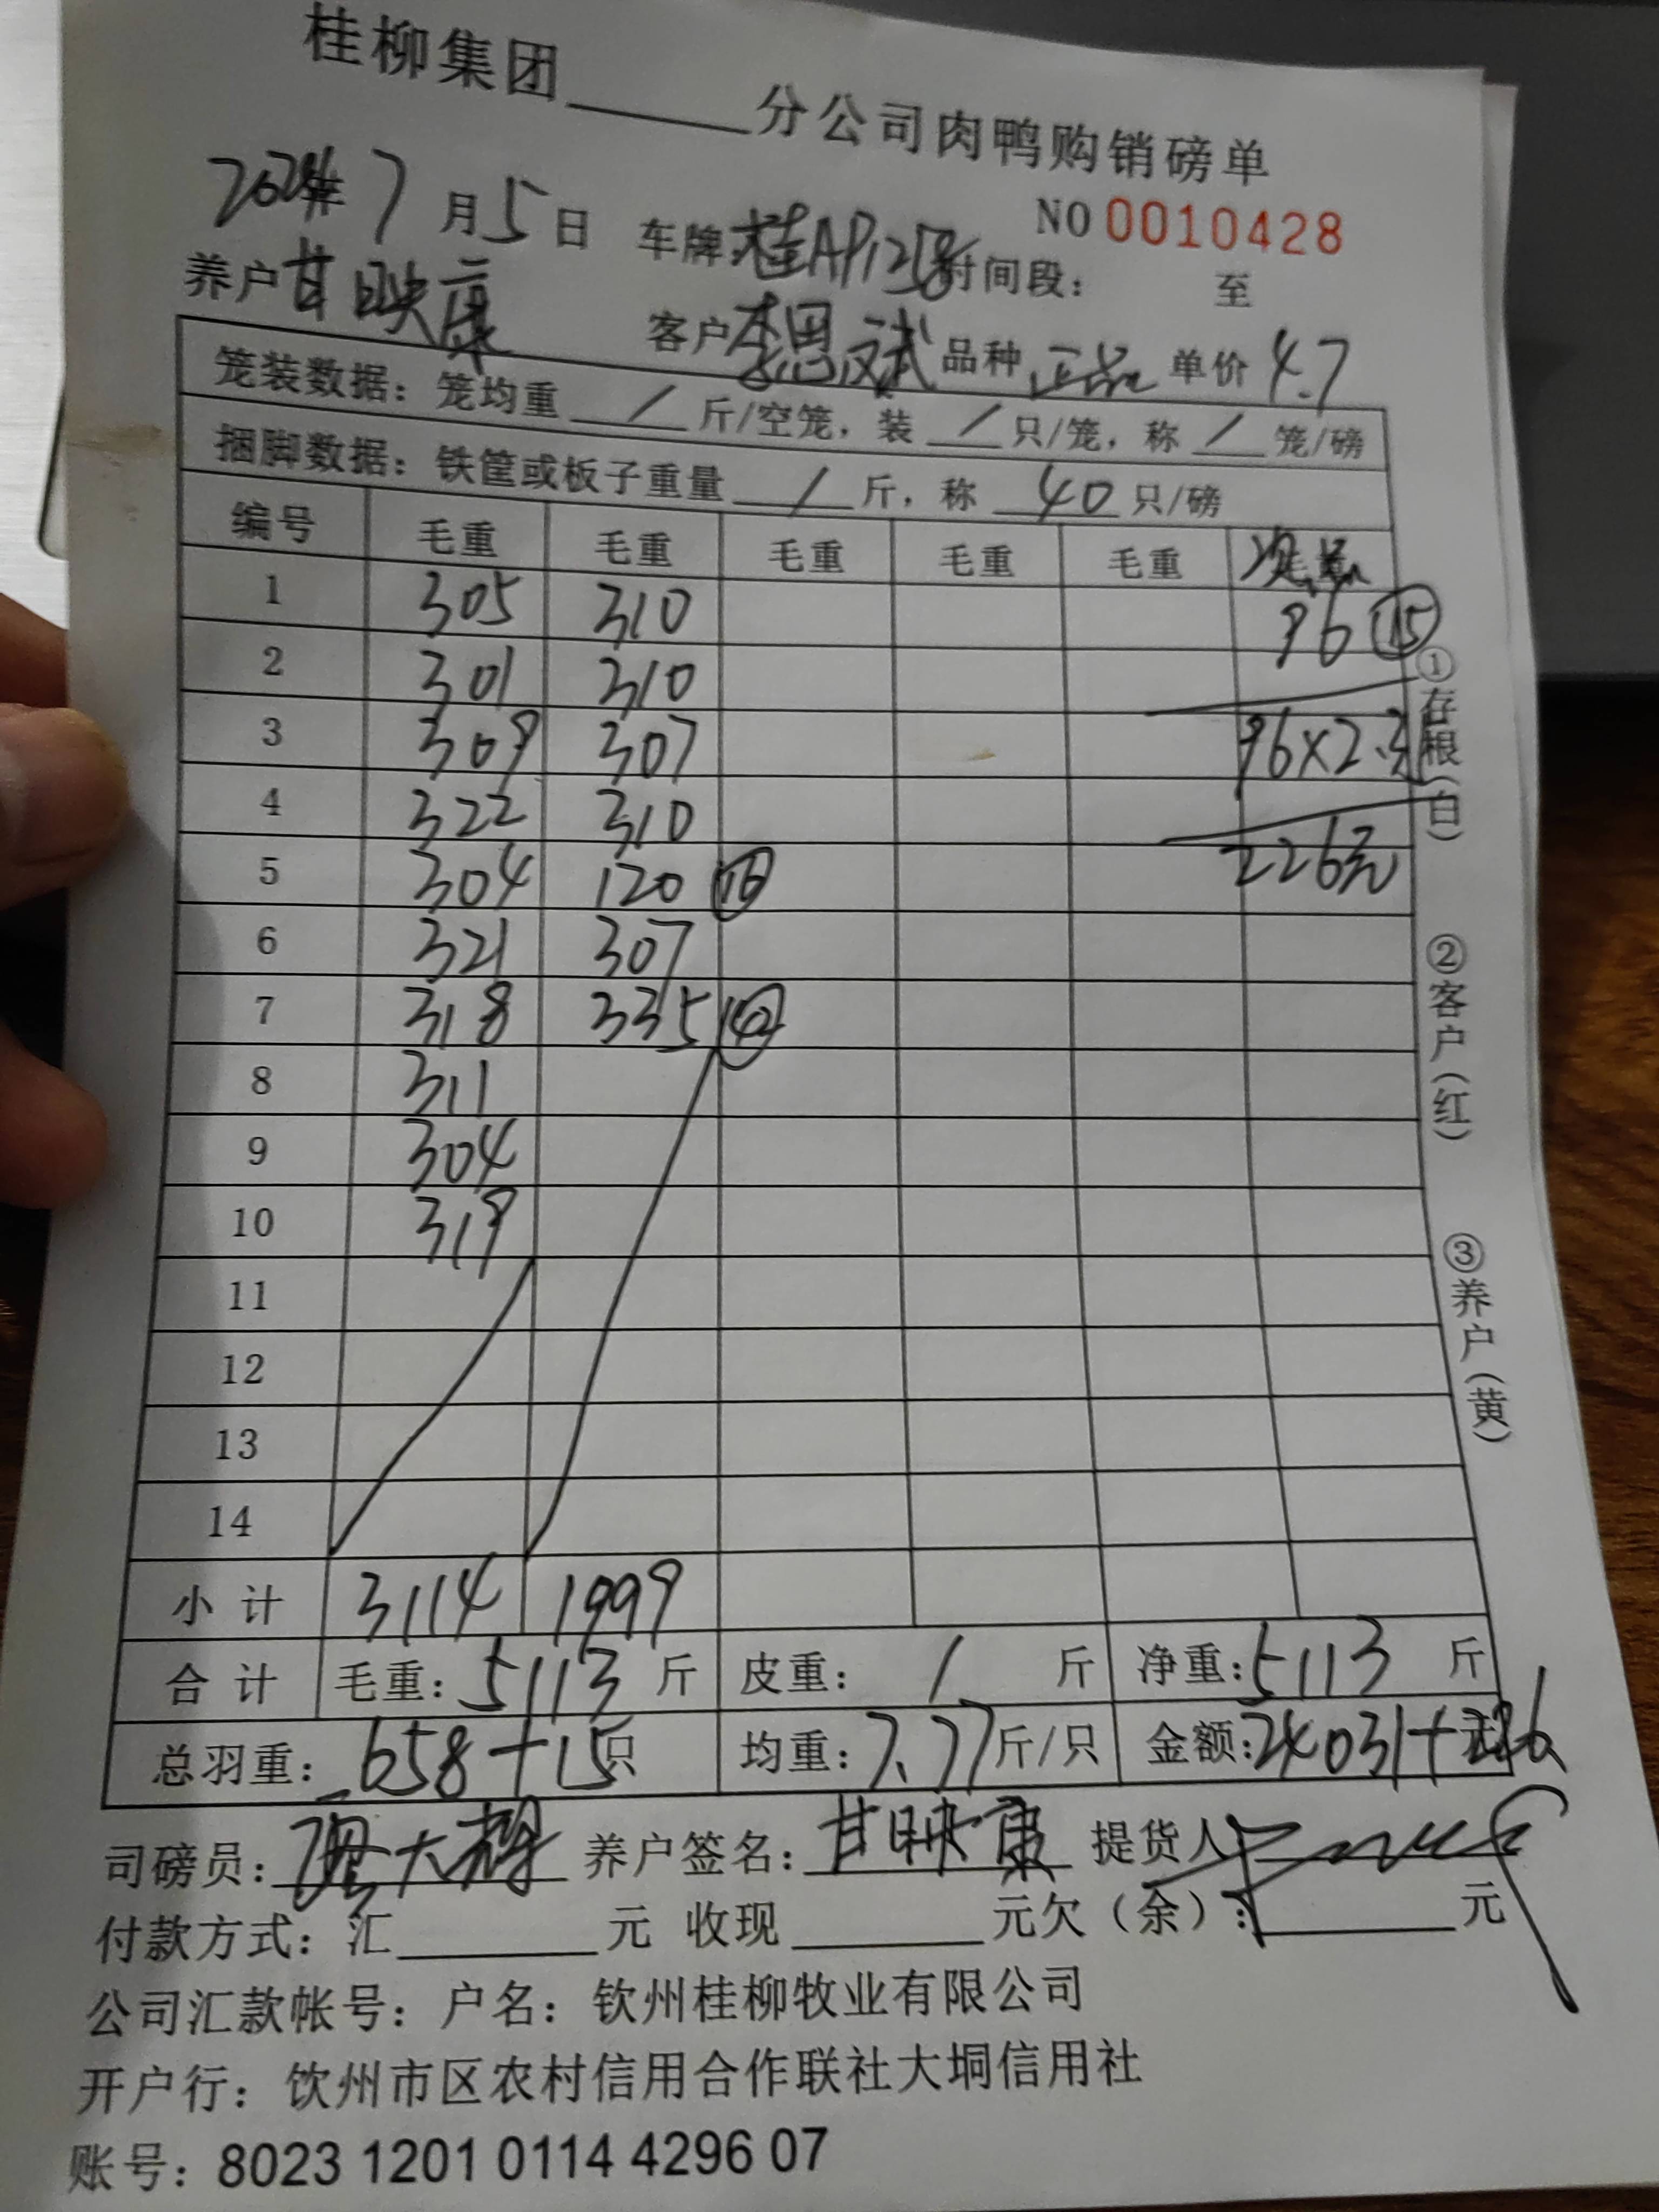 桂柳集团______分公司肉鸭购销磅单
NO 0010428
2024年 7月5日 车牌:桂AP1258 时间段: 至
养户 甘映康 客户 李思斌 品种 正品 单价 4.7
笼装数据: 笼均重 / 斤/空笼, 装 / 只/笼, 称 / 笼/磅
捆脚数据: 铁筐或板子重量 / 斤, 称 40 只/磅
编号 毛重 毛重 毛重 毛重 毛重
1 305 310 96 (15)
2 301 310
3 309 307 96×2.
4 322 310
5 304 120 (16) 226元
6 321 307
7 318 335 (42)
8 311
9 304
10 319
11
12
13
14
小计 3114 1999
合计 毛重: 5113 斤 皮重: / 斤 净重: 5113 斤
总羽重: 658+15只 均重: 7.77斤/只 金额: 24031+226
司磅员: 养户签名: 甘映康 提货人
付款方式: 汇______元 收现______元欠(余):______元
公司汇款帐号: 户名: 钦州桂柳牧业有限公司
开户行: 饮州市区农村信用合作联社大垌信用社
账号: 8023 1201 0114 4296 07
①存根(白) ②客户(红) ③养户(黄)